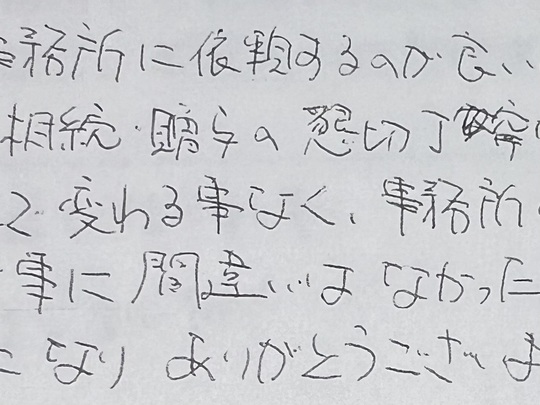 務所に依頼するのが良い
相続・贈与の懇切丁寧
変わる事なく、事務所
事に間違いはなかった
になり ありがとうござい